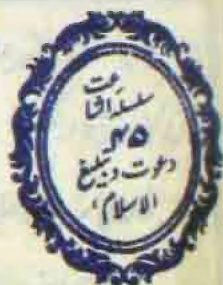 سلسلہ اشاعت
۴۵
دعوت و تبلیغ
الاسلام،